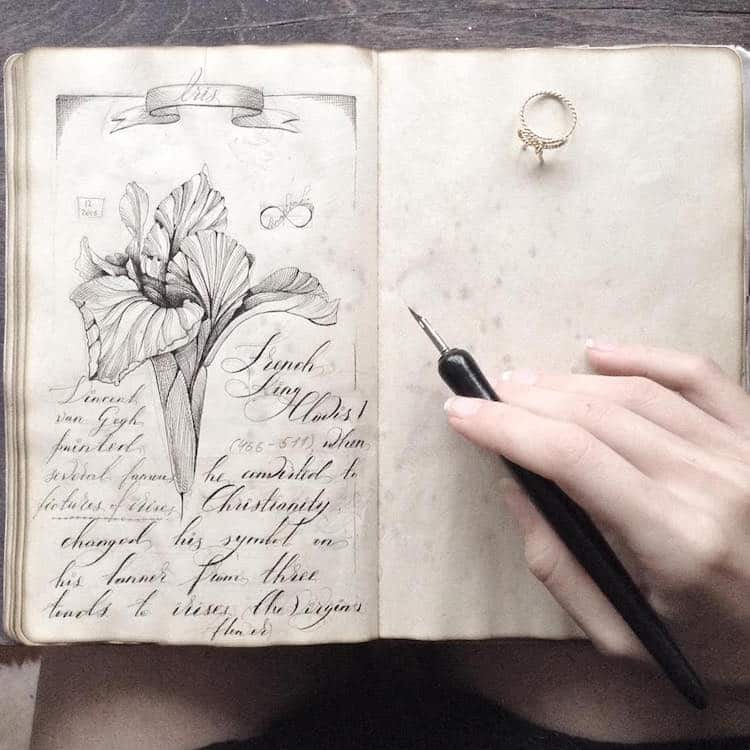 Iris
12
French
King
Clovis I
(466-511) when
he converted to
Christianity,
Vincent
van Gogh
painted
several famous
pictures of irises
changed his symbol on
his banner from three
toads to irises (the Virgin's
flower)